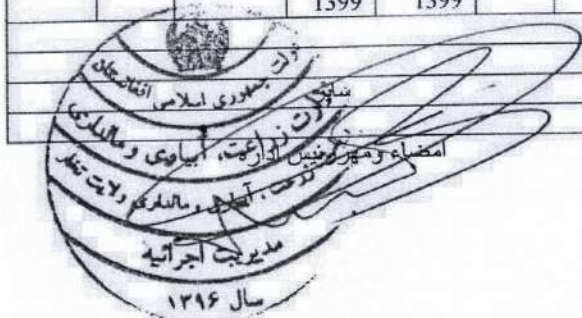 1399 1399
دولت جمهوری اسلامی افغانستان
وزارت زراعت، آبیاری و مالداری
امضاء ومهر رئیس اداره
زراعت، آبیاری و مالداری ولایت تخار
مدیریت اجرائیه
سال ۱۳۹۶